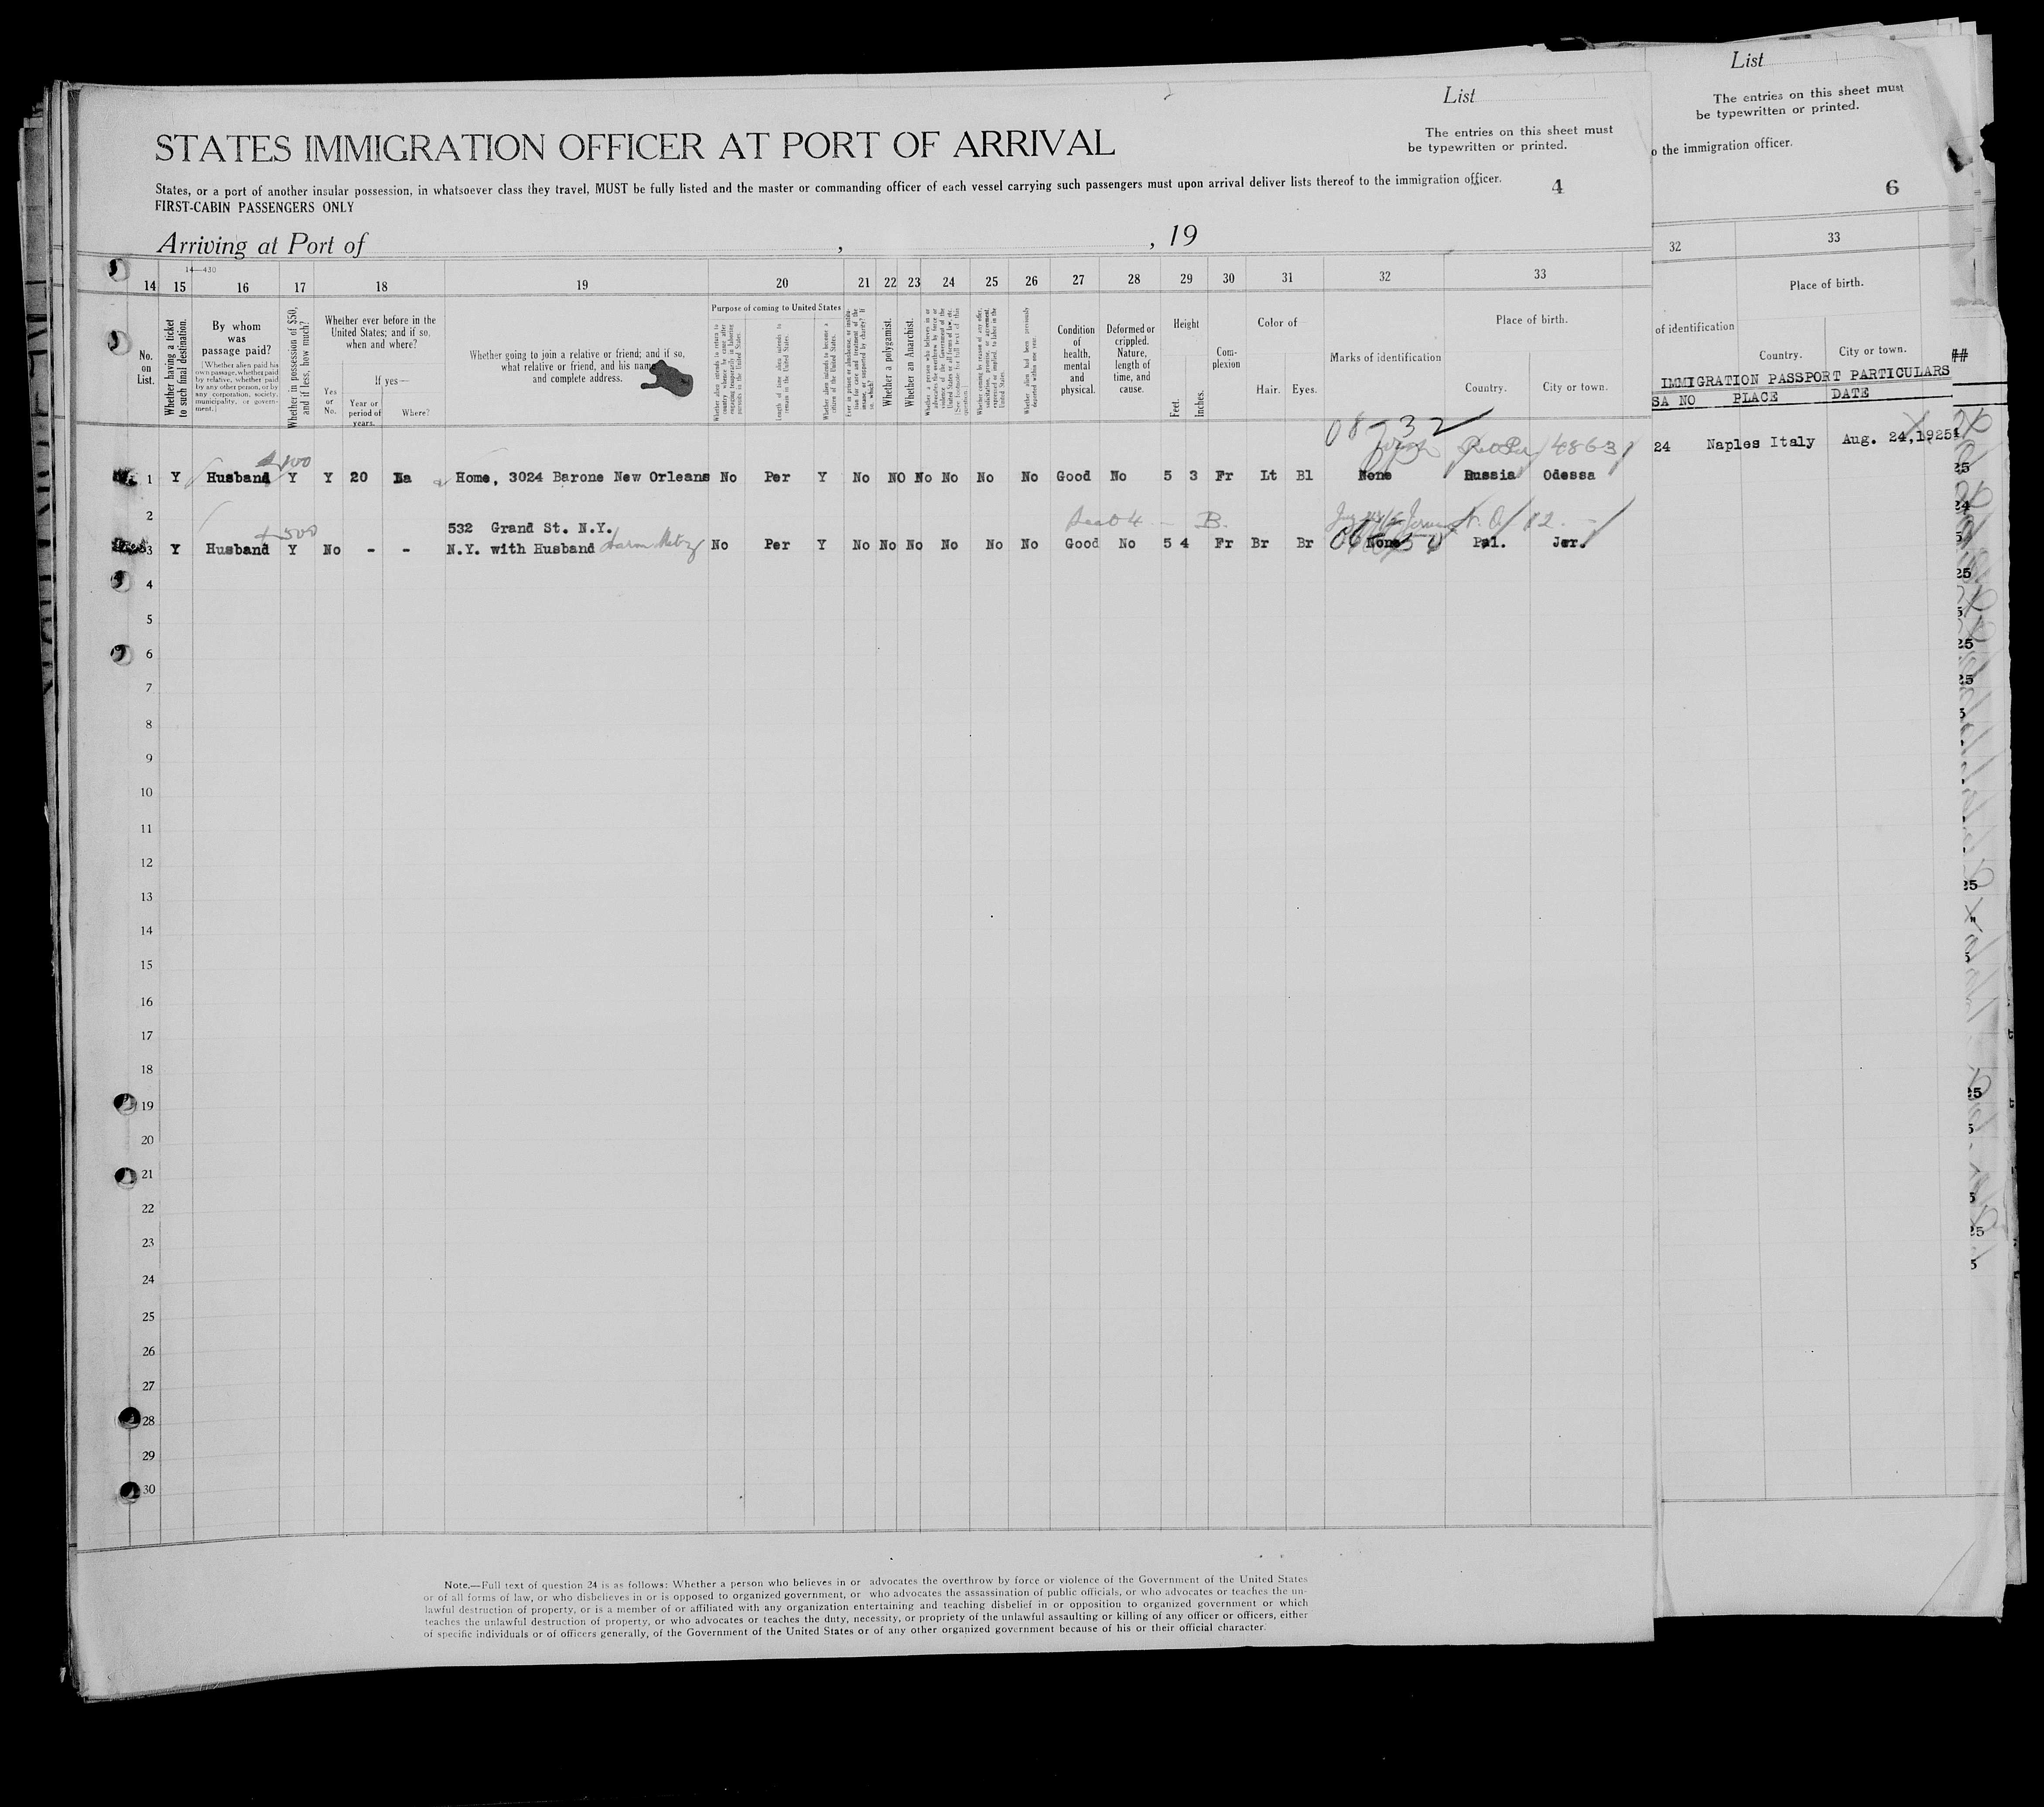 List
The entries on this sheet must
be typewritten or printed.
STATES IMMIGRATION OFFICER AT PORT OF ARRIVAL
States, or a port of another insular possession, in whatsoever class they travel, MUST be fully listed and the master or commanding officer of each vessel carrying such passengers must upon arrival deliver lists thereof to the immigration officer.
4
FIRST-CABIN PASSENGERS ONLY
Arriving at Port of , , 19
14—430
14 15 16 17 18 19 20 21 22 23 24 25 26 27 28 29 30 31 32 33
No. on List.
Whether having a ticket to such final destination.
By whom was passage paid?
[Whether alien paid his own passage, whether paid by relative, whether paid by any other person, or by any corporation, society, municipality, or government.]
Whether in possession of $50, and if less, how much?
Whether ever before in the United States; and if so, when and where?
Yes or No.
If yes—
Year or period of years.
Where?
Whether going to join a relative or friend; and if so, what relative or friend, and his name and complete address.
Purpose of coming to United States
Whether alien intends to return to country whence he came after engaging temporarily in laboring pursuits in the United States.
Length of time alien intends to remain in the United States.
Whether alien intends to become a citizen of the United States.
Ever in prison or almshouse, or institution for care and treatment of the insane, or supported by charity? If so, which?
Whether a polygamist.
Whether an Anarchist.
Whether coming by reason of any offer, solicitation, promise, or agreement, expressed or implied, to labor in the United States.
Whether alien had been previously deported within one year.
Condition of health, mental and physical.
Deformed or crippled. Nature, length of time, and cause.
Height
Feet. Inches.
Com-plexion
Color of—
Hair. Eyes.
Marks of identification
Place of birth.
Country. City or town.
08732
4863
$100
1 Y Husband Y Y 20 La Home, 3024 Barone New Orleans No Per Y No NO No No No No Good No 5 3 Fr Lt Bl None Russia Odessa
2
532 Grand St. N.Y.
500
3 Y Husband Y No - - N.Y. with Husband No Per Y No No No No No No Good No 5 4 Fr Br Br None Pal. Jer.
4
5
6
7
8
9
10
11
12
13
14
15
16
17
18
19
20
21
22
23
24
25
26
27
28
29
30
Note.—Full text of question 24 is as follows: Whether a person who believes in or advocates the overthrow by force or violence of the Government of the United States
or of all forms of law, or who disbelieves in or is opposed to organized government, or who advocates the assassination of public officials, or who advocates or teaches the un-
lawful destruction of property, or is a member of or affiliated with any organization entertaining and teaching disbelief in or opposition to organized government or which
teaches the unlawful destruction of property, or who advocates or teaches the duty, necessity, or propriety of the unlawful assaulting or killing of any officer or officers, either
of specific individuals or of officers generally, of the Government of the United States or of any other organized government because of his or their official character.
List
The entries on this sheet must
be typewritten or printed.
o the immigration officer.
6
32 33
Place of birth.
of identification
Country. City or town.
##
IMMIGRATION PASSPORT PARTICULARS
SA NO PLACE DATE
24 Naples Italy Aug. 24,1925